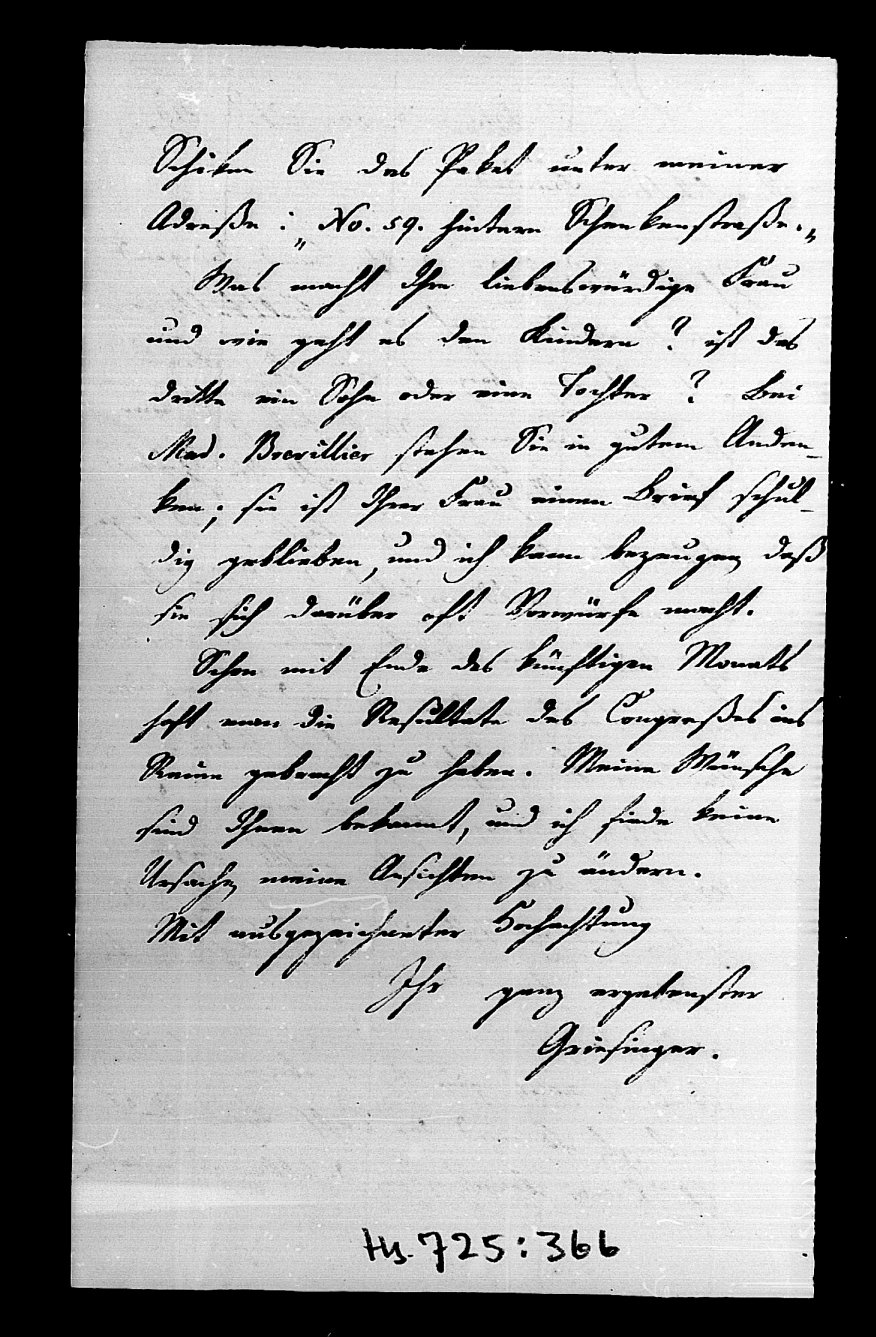 Schiken Sie das Paket unter meiner
Adreße: „No. 59. hintern Schenkenstraße.„
Was macht Ihre liebenswürdige Frau
und wie geht es den Kindern? ist das
dritte ein Sohn oder eine Tochter? Bei
Mad. Brevillier stehen Sie in gutem Anden-
ken; sie ist Ihrer Frau einen Brief schul-
dig geblieben, und ich kann bezeugen daß
sie sich darüber oft Vorwürfe macht.
Schon mit Ende des künftigen Monats
hoft man die Resultate des Congreßes ins
Reine gebracht zu haben. Meine Wünsche
sind Ihnen bekannt, und ich finde keine
Ursache, meine Ansichten zu ändern.
Mit ausgezeichneter Hochachtung
Ihr ganz ergebenster
Griesinger.
Hs. 725:366